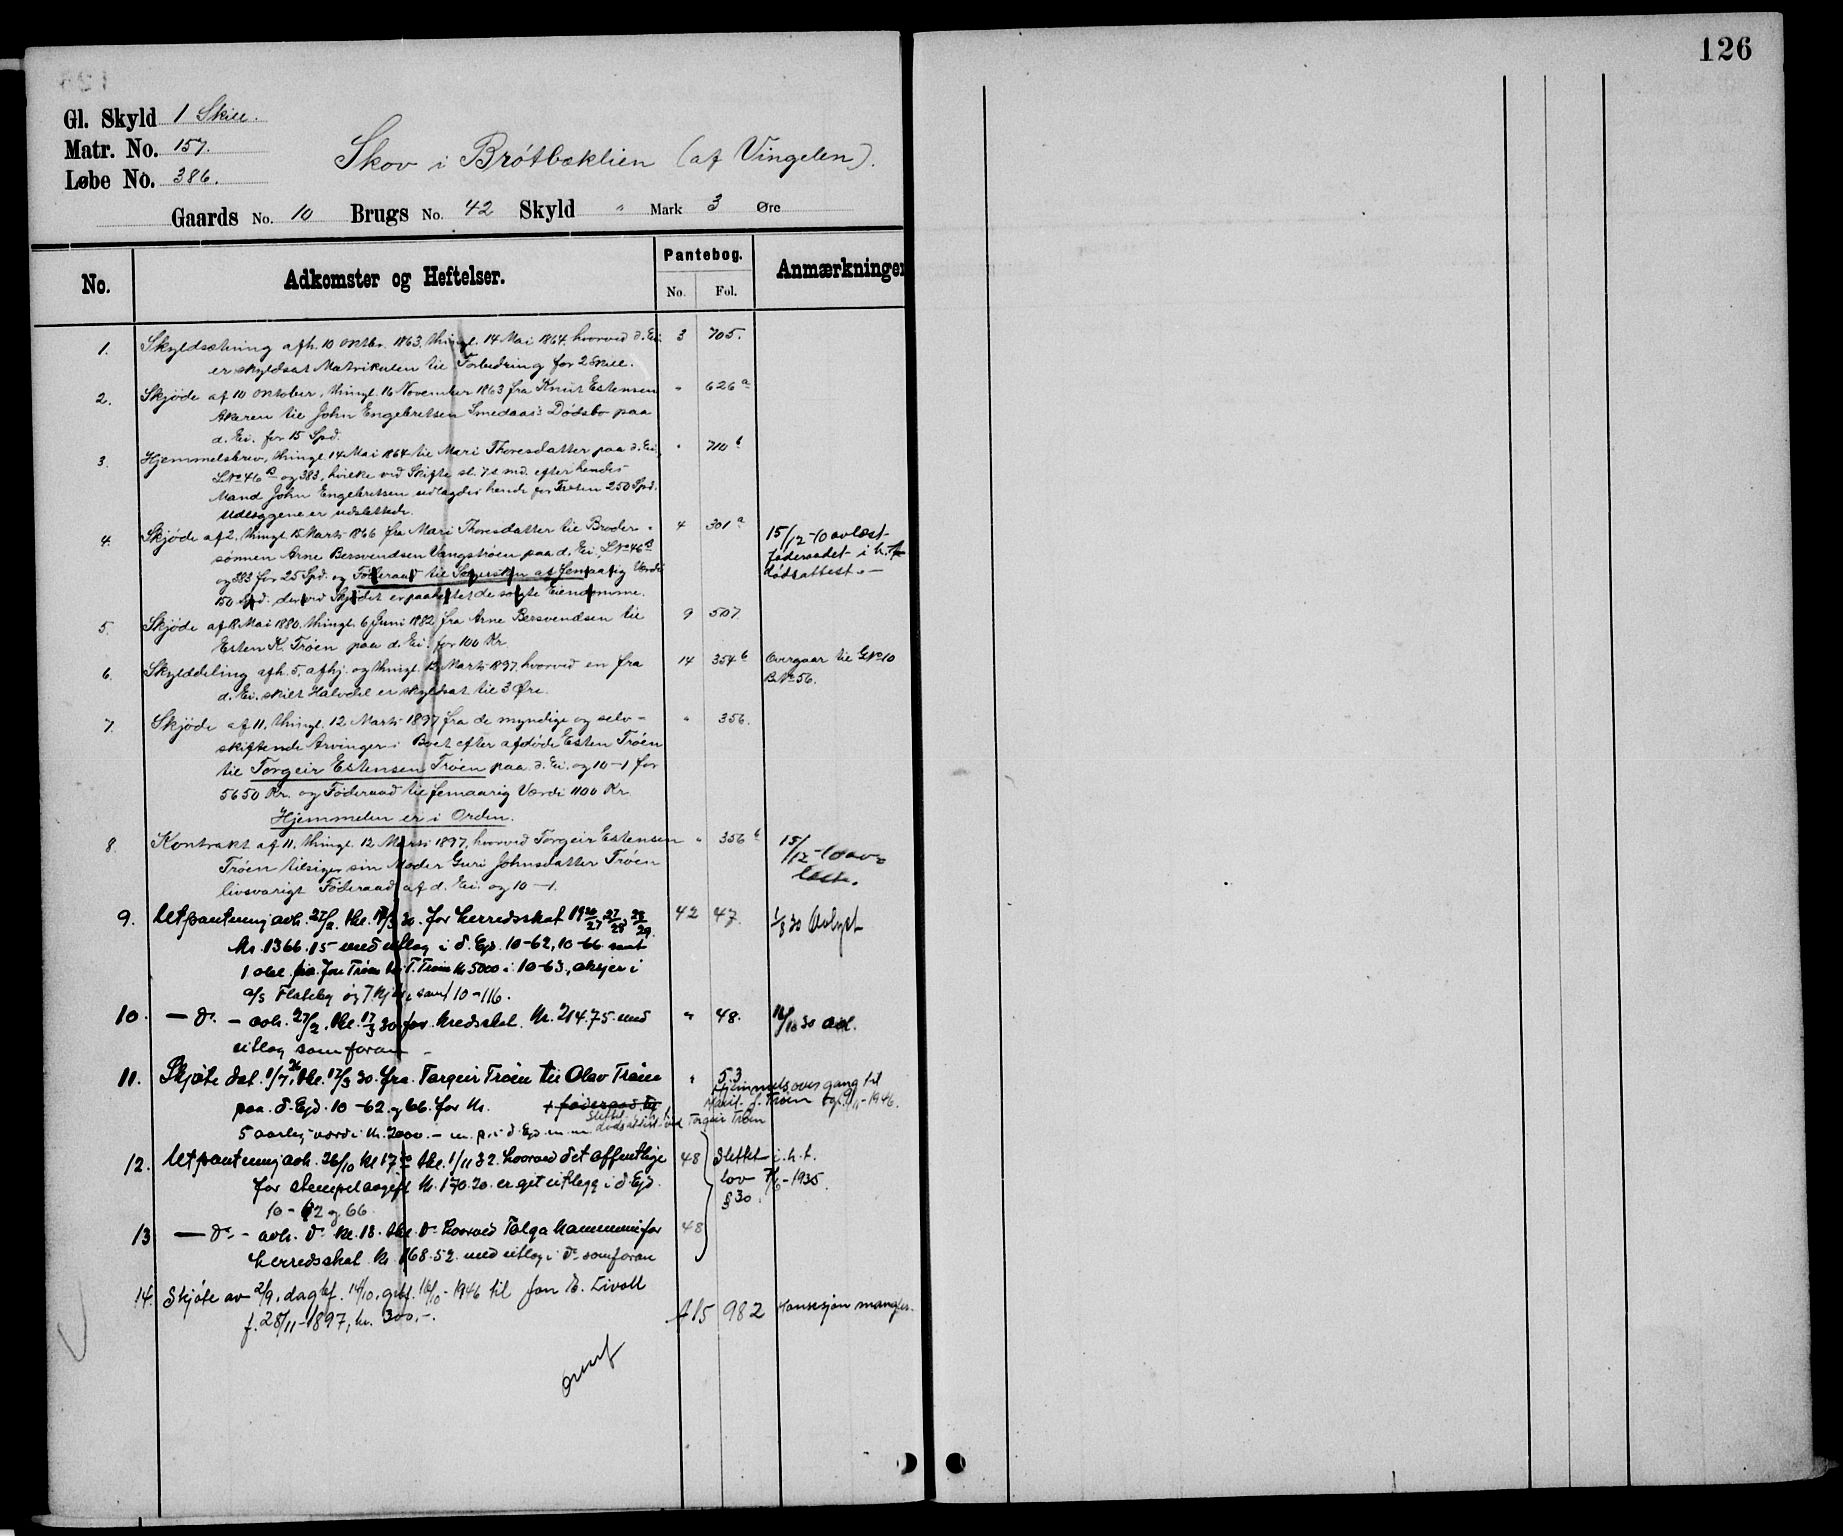 126
Gl. Skyld 1 Skill.
Matr. No. 157.
Løbe No. 386.
Skov i Brøtbæklien (af Vingelen).
Gaards No. 10 Brugs No. 42 Skyld " Mark 3 Øre
No. Adkomster og Heftelser. Pantebog. No. Fol. Anmærkninger
1. Skyldsætning afh. 10 Oktbr. 1863, thingl. 14 Mai 1864, hvorved d. Ei. 3 705.
er skyldsat Matrikulen til Forbedring for 2 Skill.
2. Skjøde af 10 Oktober, thingl. 16 November 1863 fra Knut Estensen " 626 a
Akeren til John Engebretsen Smedaas's Dødsbo paa
d. Ei. for 15 Spd.
3. Hjemmelsbrev, thingl. 14 Mai 1864 til Mari Thoresdatter paa d. Ei, " 710 b
LNo 46 B og 383, hvilke ved Skifte sl. 7 s. md. efter hendes
Mand John Engebretsen udlagdes hende for Tilsten 250 Spd.
Udlæggene er udslettede.
4. Skjøde af 2, thingl. 15 Marts 1866 fra Mari Thoresdatter til Broder- 4 301 a 15/12-10 avlæst
sønnen Arne Bersvendsen Vangstrøen paa d. Ei, LNo 46 B føderaadet i h. t.
og 383 for 25 Spd. og Føderaad til Sælgersken af femaarig Værdi dødsattest.-
150 Spd. der ved Skjødet er paaheftet de solgte Eiendomme.
5. Skjøde af 8 Mai 1880, thingl. 6 Juni 1882 fra Arne Bersvendsen til 9 507
Esten K. Trøen paa d. Ei. for 100 Kr.
6. Skylddeling afh. 5, afhj. og thingl. 12 Marts 1897, hvorved en fra 14 354 b Overgaar til GNo 10
d. Ei. skilt Halvdel er skyldsat til 3 Øre. BNo 56.
7. Skjøde af 11, thingl. 12 Marts 1897 fra de myndige og selv- " 356.
skiftende Arvinger i Boet efter afdøde Esten Trøen
til Torgeir Estensen Trøen paa d. Ei. og 10-1 for
5650 Kr. og Føderaad til femaarig Værdi 1100 Kr.
Hjemmelen er i Orden.
8. Kontrakt af 11, thingl. 12 Marts 1897, hvorved Torgeir Estensen " 356 b 15/12-10 av-
Trøen tilsiger sin Moder Guri Johnsdatter Trøen læst.
livsvarigt Føderaad af d. Ei. og 10-1.
9. Utpantning avh. 27/2, thl. 17/3 30. for herredsskat 1926/27, 27/28, 28/29. 42 47. 1/8 30 Avlyst
Kr. 1366.15 med utlæg i d. Ejd. 10-62, 10-66 samt
1 obl. fra Jon Trøen til T. Trøen kr 5000 i 10-63, aksjer i
a/s samt 10-116.
10. - Do - avh. 27/2, thl. 17/3 30 for kredsskat. Kr. 214.75 med " 48. 16/10 30 avl.
utlæg som foran -
11. Skjøte dat. 1/7, thl. 17/3 30. fra Torgeir Trøen til Olav Trøen " 53 Hjemmelsovergang til
paa d. Ejd. 10-62 og 66. for kr. + føderaad til Marit J. Trøen tgl. 9/11-1946.
5 aarlig værdi kr. 2000.- m. p. i d. Ejd. m. m. Slettet i h. t. dødsattest ved Torgeir Trøen
12. Utpantning avh. 26/10 kl 17 30 thl. 1/11 32. hvorved det offentlige 48 Slettet i. h. t.
for stempelavgift kr. 170.20. er git utlegg i d Ejd. lov 7/6-1935.
10-62 og 66. § 30.
13 - Do - avh. Do kl. 18. thl. Do hvorved Tolga kommune for 48
herredsskat kr. 168.52 med utlæg i Do som foran
14. Skjøte av 2/9, dagbf. 14/10, gebf. 16/10-1946 til Jon E. Livoll
f. 28/11-1897, kr. 300,-. A15 982 Konsesjon mangler.